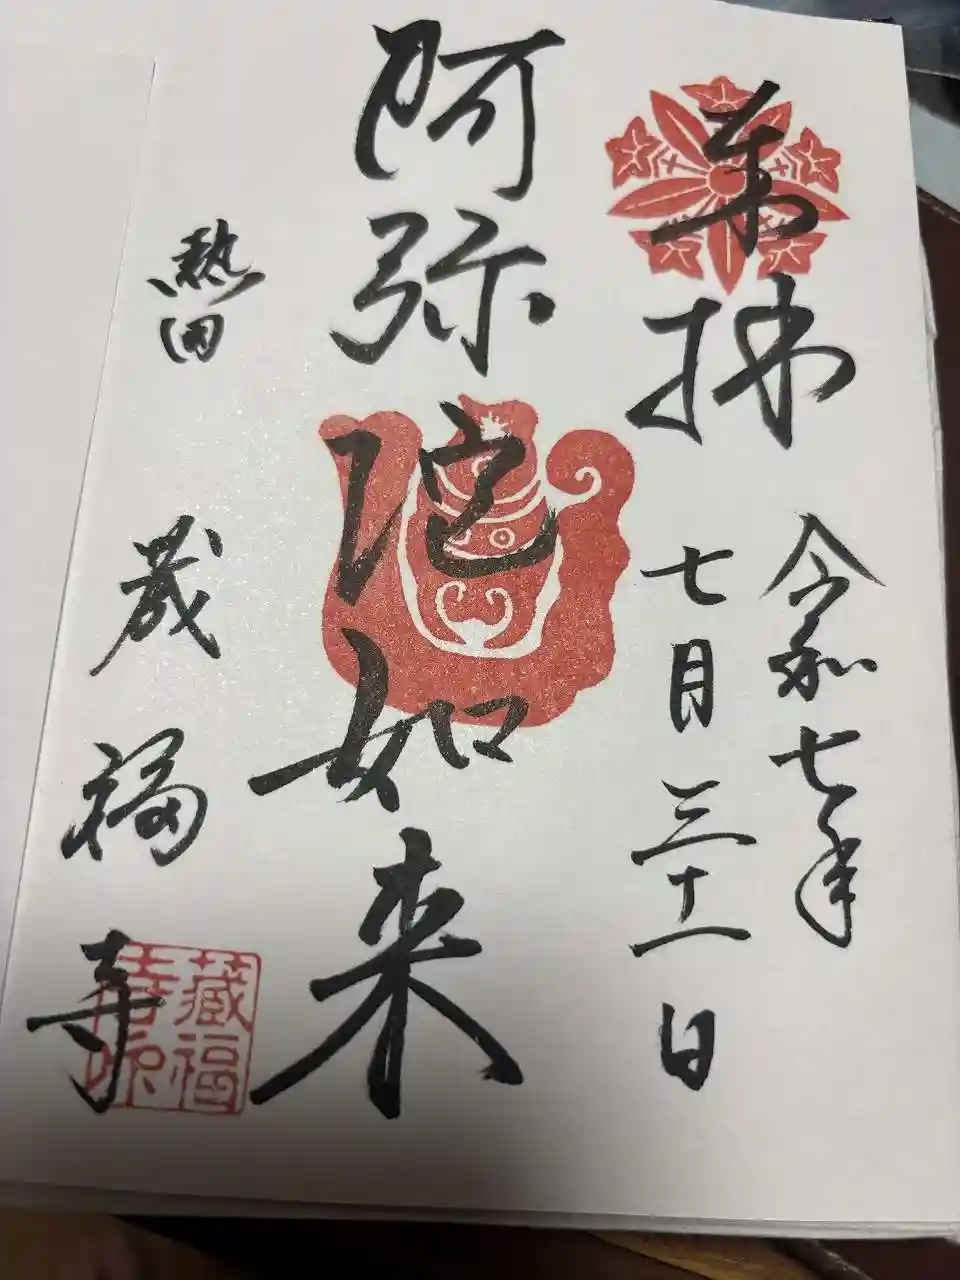 奉拝
令和七年
七月三十一日
阿弥陀如来
熱田
蔵福寺
蔵福
寺印